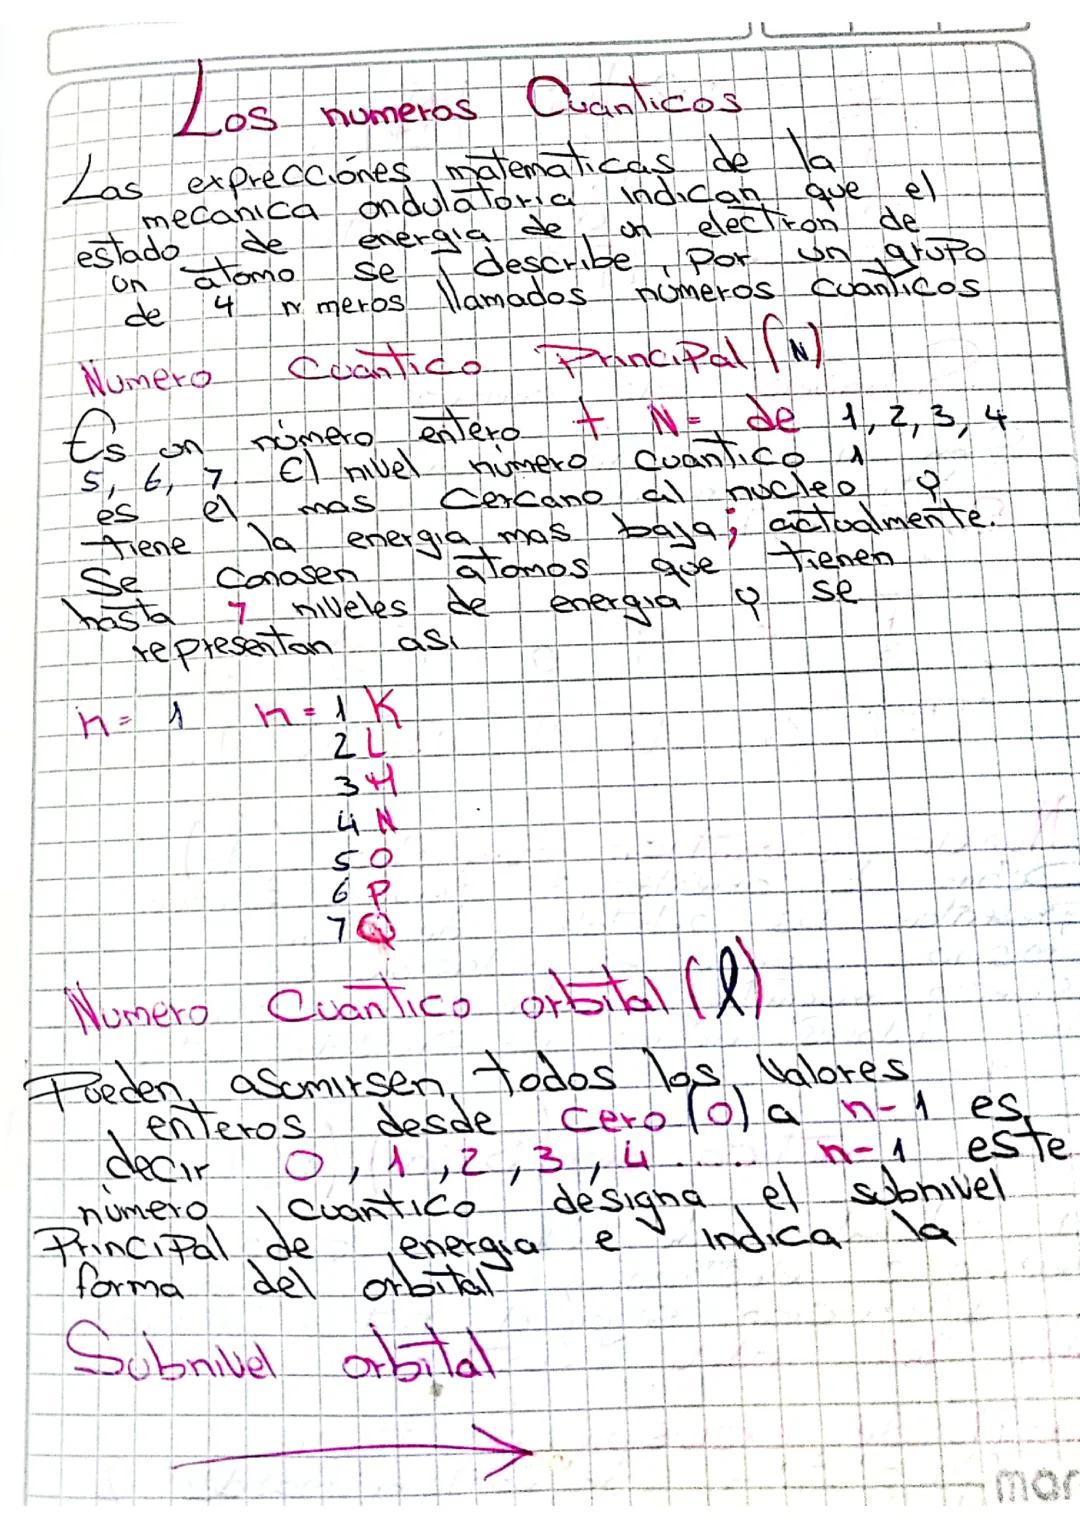 Los numeros Cuanticos
Las exprecciónes matematicas de la
mecanica ondulatoria indican que el
estado de energia de un electron de
un atomo se describe por un grupo
de 4 n meros llamados números cuanticos
Numero Cuantico Principal (N)
Es un número entero + N= de 1, 2, 3, 4
5, 6, 7. El nivel número cuantico 1
es el mas cercano al nucleo y
tiene la energia mas baja; actualmente.
Se conosen atomos que tienen
hasta 7 niveles de energia y se
representan asi
n= 1 n= 1 K
2 L
3 M
4 N
5 O
6 P
7 Q
Numero Cuantico orbital (l)
Pueden asumirsen todos los valores
enteros desde cero (0) a n-1 es
decir 0, 1, 2, 3, 4 ...... n-1 este
número cuantico designa el subnivel
Principal de energia e indica la
forma del orbital
Subnivel orbital
mar